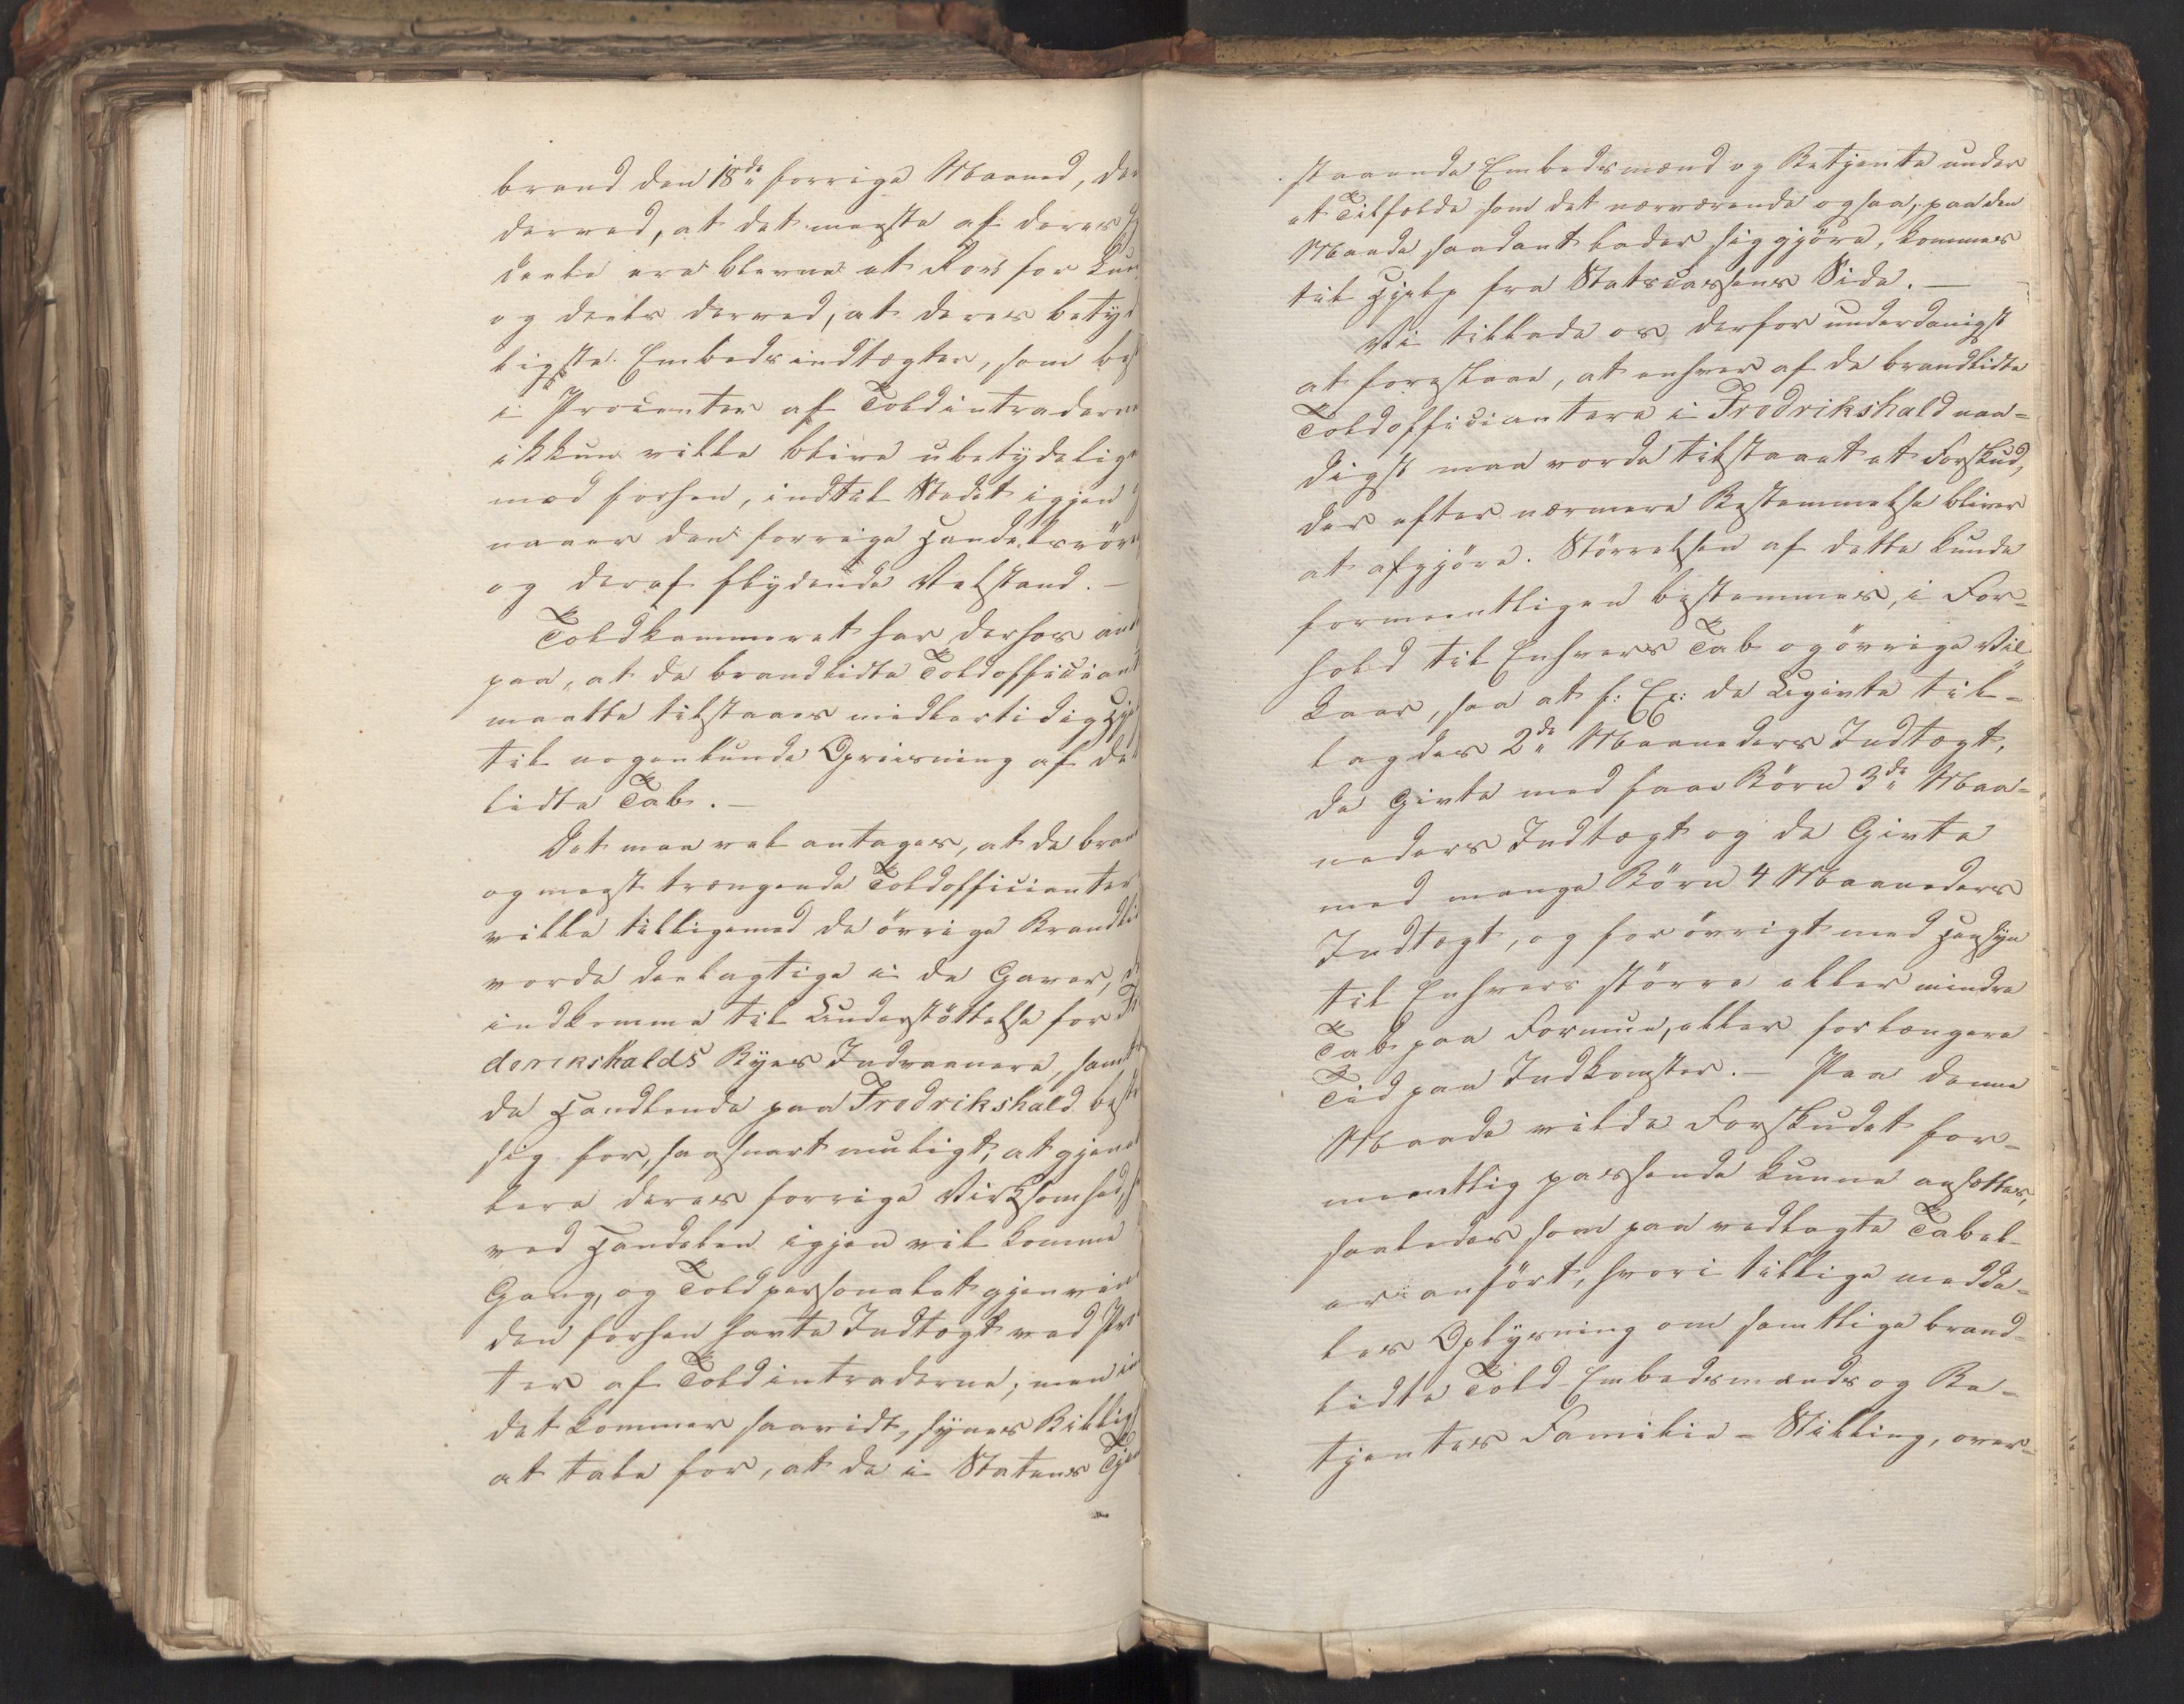 brand den 18de forrige Maaned, de
derved, at det meeste af deres
deele ere blevne et Rov for Lue
og deels derved, at deres betyd
ligste Embedsindtægter, som bes
i Procenter af Toldintraderne
ikkun ville blive ubetydelige
mod forhen, indtil Stedet igjen
naaer den forrige Handelsrör
og deraf flydende Velstand. –
Toldkammeret har derhos an
paa, at de brandlidte Toldofficiant
maatte tilstaaes midlertidig Hjel
til nogenlunde Opreisning af det
lidte Tab. –
Det maa vel antages, at de bran
og meest trængende Toldofficianter
ville tilligemed de övrige Brandli
vorde deelagtige i de Gaver, d
indkomme til Understöttelse for Fr
derikshalds Byes Indvaanere, samt
de Handlende paa Fredrikshald best
sig for, saasnart muligt, at gjen
lere deres forrige Virksomhed,
ved Handelen igjen vil komme
Gang, og Toldpersonalet gjenvin
den forhen havte Indtægt ved Pro
ter af Toldintraderne; men in
det kommer saavidt, synes Billigh
at tale for, at de i Statens Tjen
staaende Embedsmænd og Betjente under
et Tilfælde som det nærværende ogsaa, paa den
Maade saadant lader sig gjöre, kommes
til Hjelp fra Statscassens Side. –
Vi tillade os derfor underdanigst
at foreslaae, at enhver af de brandlidte
Toldofficiantere i Fredrikshald naa-
digst maa vorde tilstaaet et Forskud,
der efter nærmere Bestemmelse bliver
at afgjöre. Störrelsen af dette kunde
formeentligen bestemmes, i For-
hold til Enhvers Tab og övrige Vil
kaar, saa at f: Ex: de Ugivte til-
lagdes 2de Maaneders Indtægt,
de Givte med faae Börn 3de Maa-
neders Indtægt og de Givte
med mange Börn 4 Maaneders
Indtægt, og for övrigt med Hensyn
til Enhvers större eller mindre
Tab paa Formue, eller for længere
Tid paa Indkomster. – Paa denne
Maade vilde Forskudet for-
meentlig passende kunne ansættes,
saaledes som paa vedlagte Tabel
er anfört, hvori tillige medde-
les Oplysning om samtlige brand-
lidte Told Embedsmænds og Be-
tjentes Familie-Stilling, over-